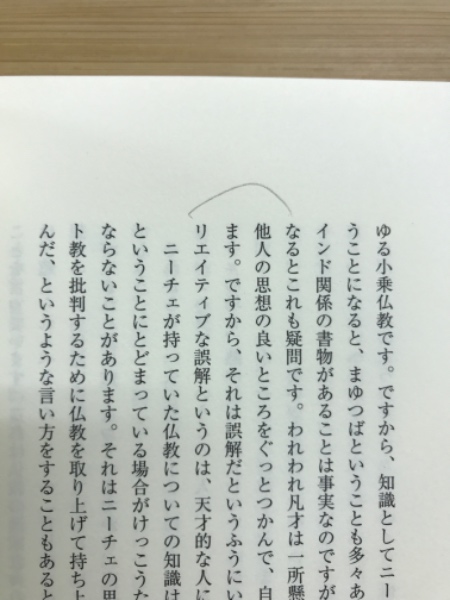 ゆる小乗仏教です。ですから、知識としてニー
うことになると、まゆつばということも多々あ
インド関係の書物があることは事実なのですが
なるとこれも疑問です。われわれ凡才は一所懸
他人の思想の良いところをぐっとつかんで、自
ます。ですから、それは誤解だというふうにい
リエイティブな誤解というのは、天才的な人に
ニーチェが持っていた仏教についての知識は
ということにとどまっている場合がけっこうた
ならないことがあります。それはニーチェの思
ト教を批判するために仏教を取り上げて持ち上
んだ、というような言い方をすることもあると